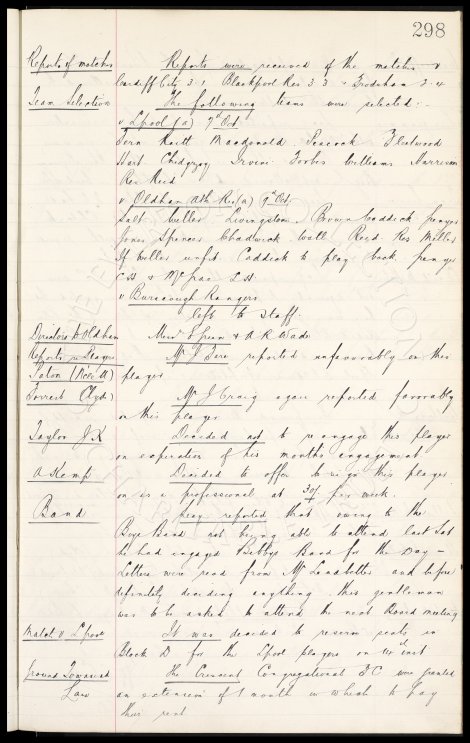 298
Reports of matches Reports were received of the matches v
Cardiff City 3.1 Blackpool Res 3.3 v Frodsham 3-4
Team Selection The following teams were selected:-
v L'pool (a) 7th Oct
Fern Raitt Macdonald Peacock Fleetwood
Hart Chedgzoy Irvine Forbes Williams Harrison
Res Reid
v Oldham Ath Res (a) 9th Oct
Salt Livingstone Brown Caddick
Jones Spencer Chadwick Wall Reid Res Miller
If unfit Caddick to play back
CH & LH
v Burscough Rangers
left to Staff.
Directors to Oldham Messrs Green & A R Wade
Reports re League Mr J reported unfavourably on this
player
Forrest (Clyde) Mr J Craig again reported favorably
on this player
Taylor J.K Decided not to re-engage this player
on expiration of his months engagement
A Kemp Decided to offer to re-sign this player
on as a professional at 30/- per week.
Band Secy reported that owing to the
Boys Band not being able to attend last Sat
he had engaged Band for the Day -
Letters were read from Mr and before
definitely deciding anything this gentleman
was to be asked to attend the next Board meeting
Match v L'pool It was decided to reserve seats in
Block D for the L'pool players on inst
Ground Townsend The Crescent Congregational F.C were granted
Lane an extension of 1 month in which to pay
their rent